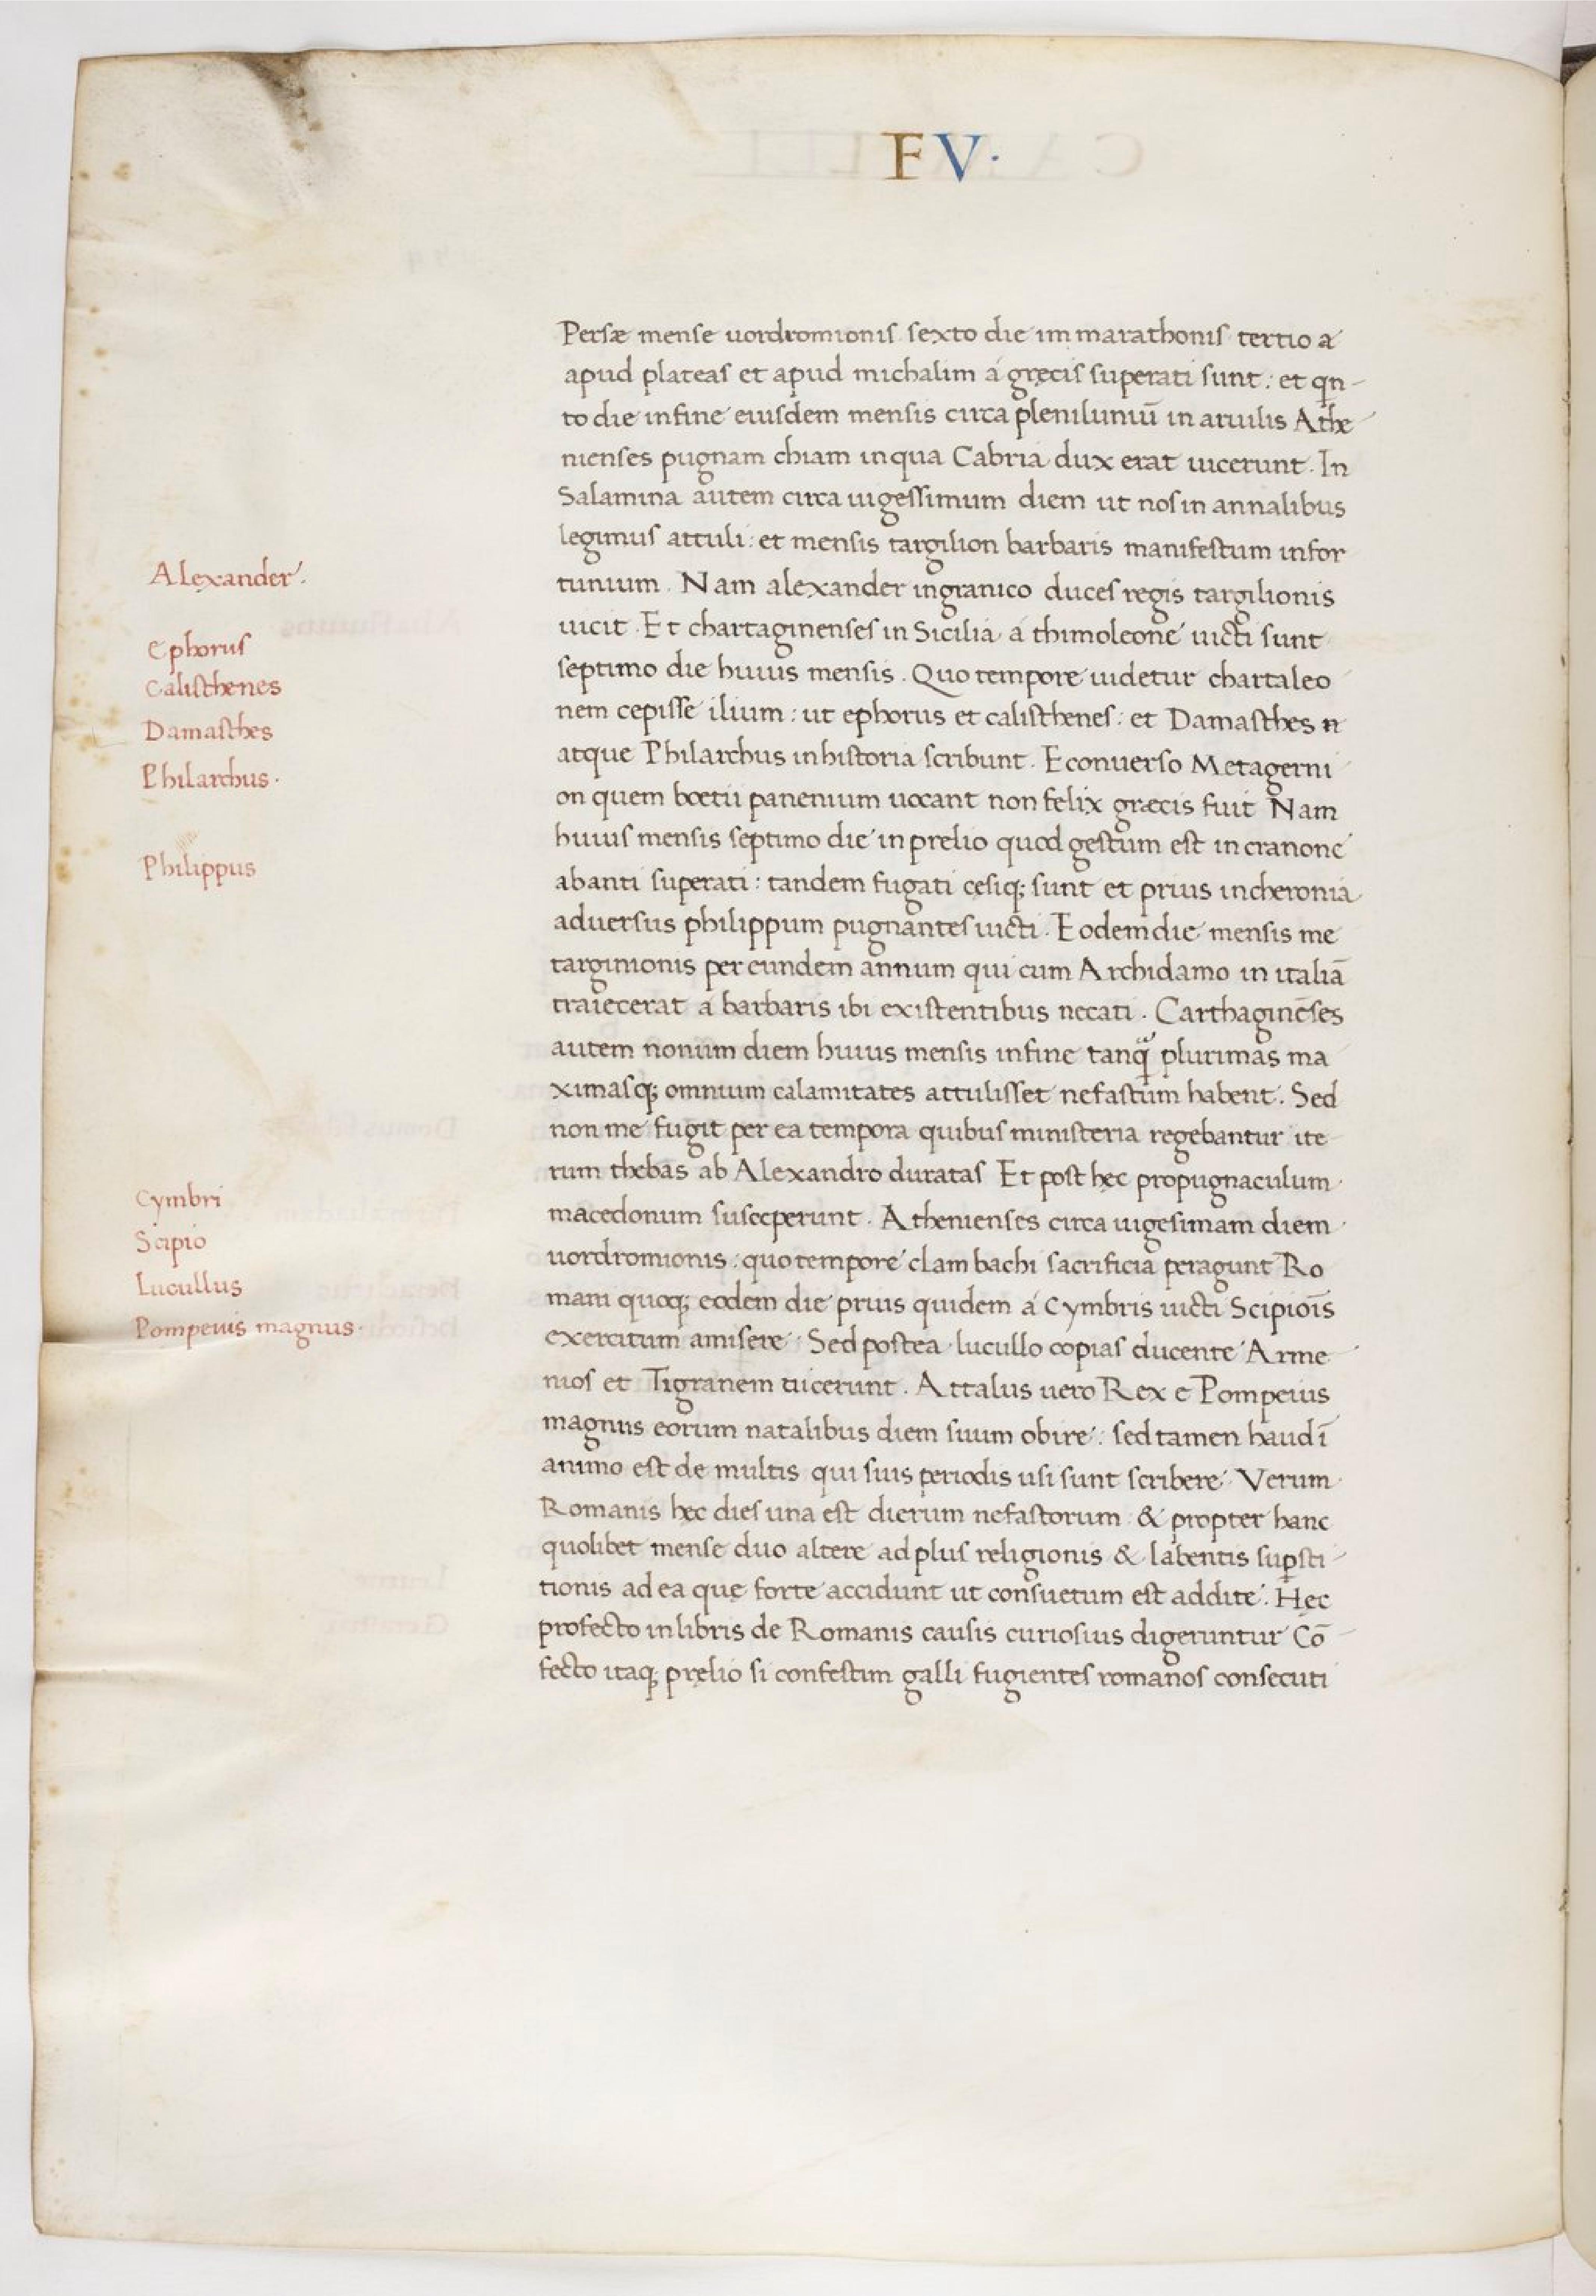 FV·
Persæ mense uordromionis sexto die im marathonis tertio a
apud plateas et apud michalim á gręcis superati sunt: et qn-
to die in fine eiusdem mensis circa pleniluniū in aruilis Athe
nienses pugnam chiam in qua Cabria dux erat uicerunt. In
Salamina autem circa uigessimum diem ut nos in annalibus
legimus attuli: et mensis targilion barbaris manifestum infor
tunium. Nam alexander in granico duces regis targilionis
uicit. Et chartaginenses in Sicilia á thimoleone uicti sunt
septimo die huius mensis. Quo tempore uidetur chartaleo
nem cepisse ilium: ut ephorus et calisthenes: et Damasthes n
atque Philarchus in historia scribunt. E conuerso Metagerni
on quem boetii panemum uocant non felix græcis fuit Nam
huius mensis septimo die in prelio quod gestum est in cranone
abanti superati: tandem fugati cesiq; sunt et prius in cheronia
aduersus philippum pugnantes uicti. Eodem die mensis me
targinionis per eundem annum qui cum Archidamo in italiā
traiecerat á barbaris ibi existentibus necati. Carthaginēses
autem nonum diem huius mensis in fine tanq̃ plurimas ma
ximasq; omnium calamitates attulisset nefastum habent. Sed
non me fugit per ea tempora quibus ministeria regebantur ite
rum thebas ab Alexandro duratas Et post hęc propugnaculum
macedonum susceperunt. Athenienses circa uigesimam diem
uordromionis: quo tempore clam bachi sacrificia peragunt Ro
mam quoq; eodem die prius quidem á Cymbris uicti Scipiōis
exercitum amisere. Sed postea lucullo copias ducente Arme
nios et Tigranem uicerunt. Attalus uero Rex e Pompeius
magnus eorum natalibus diem suum obire: sed tamen haud ī
animo est de multis qui suis periodis usi sunt scribere. Verum
Romanis hęc dies una est dierum nefastorum & propter hanc
quolibet mense duo altere ad plus religionis & labentis supsti-
tionis ad ea quę forte accidunt ut consuetum est addite. Hęc
profecto in libris de Romanis causis curiosius digeruntur Cō
fecto itaq; pręlio si confestim galli fugientes romanos consecuti
Alexander.
Ephorus
Calisthenes
Damasthes
Philarchus.
Philippus
Cymbri
Scipio
Lucullus
Pompeius magnus.